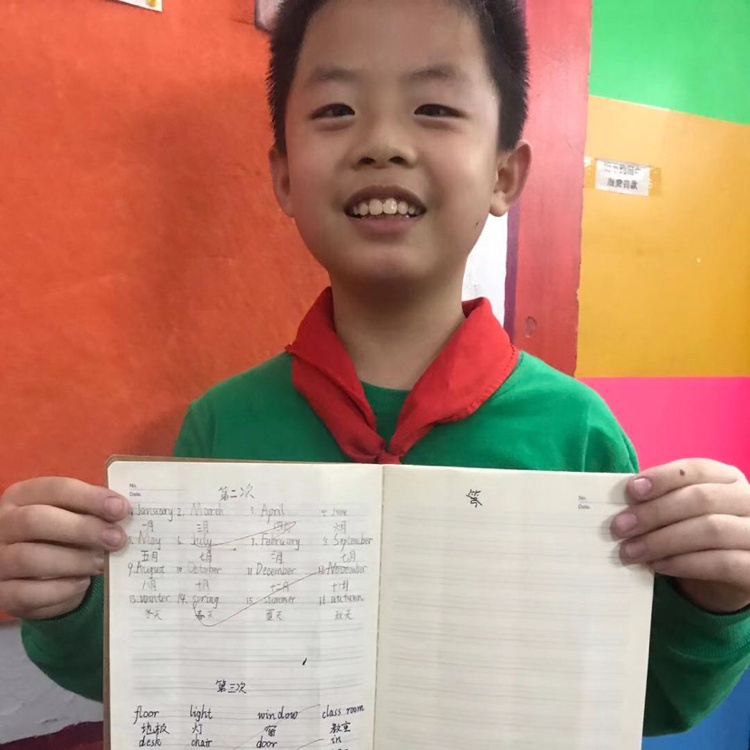 No.
Date.
第二次
1. January 2. March 3. April 4. June
一月 三月 四月 六月
5. May 6. July 7. February 8. September
五月 七月 二月 九月
9. August 10. October 11. December 12. November
八月 十月 十二月 十一月
13. winter 14. spring 15. summer 16. autumn
冬天 春天 夏天 秋天
第三次
floor light window class room
地板 灯 窗 教室
desk chair door in
答
No.
Date.